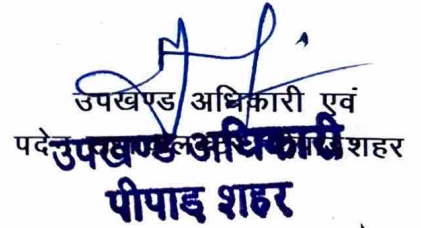 उपखण्ड अधिकारी एवं
पदेन शहर
उपखण्ड अधिकारी
पीपाड़ शहर